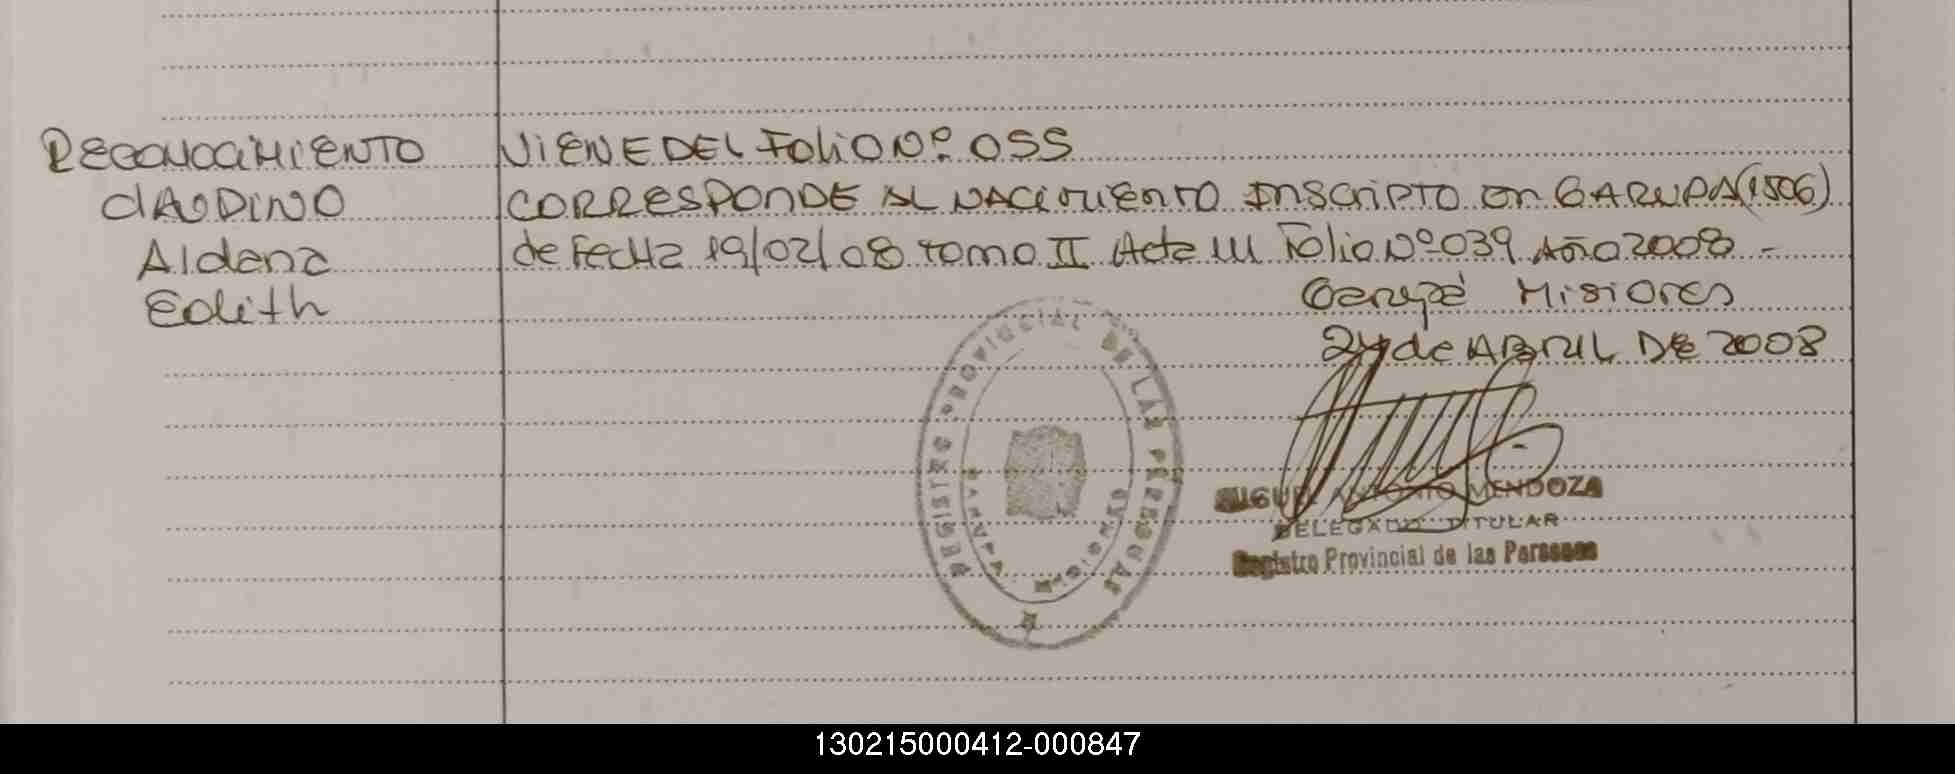 RECONOCIMIENTO
CLAUDINO
Aldana
Edith
VIENE DEL FOLIO Nº 055
CORRESPONDE AL NACIMIENTO INSCRIPTO en GARUPA (1506)
de FECHA 19/02/08 tomo II Acta Folio Nº 039 Año 2008 -
Garupá Misiones
24 de ABRIL DE 2008
REGISTRO PROVINCIAL DE LAS PERSONAS
GARUPA
MIGUEL ANTONIO MENDOZA
DELEGADO TITULAR
Registro Provincial de las Personas
130215000412-000847